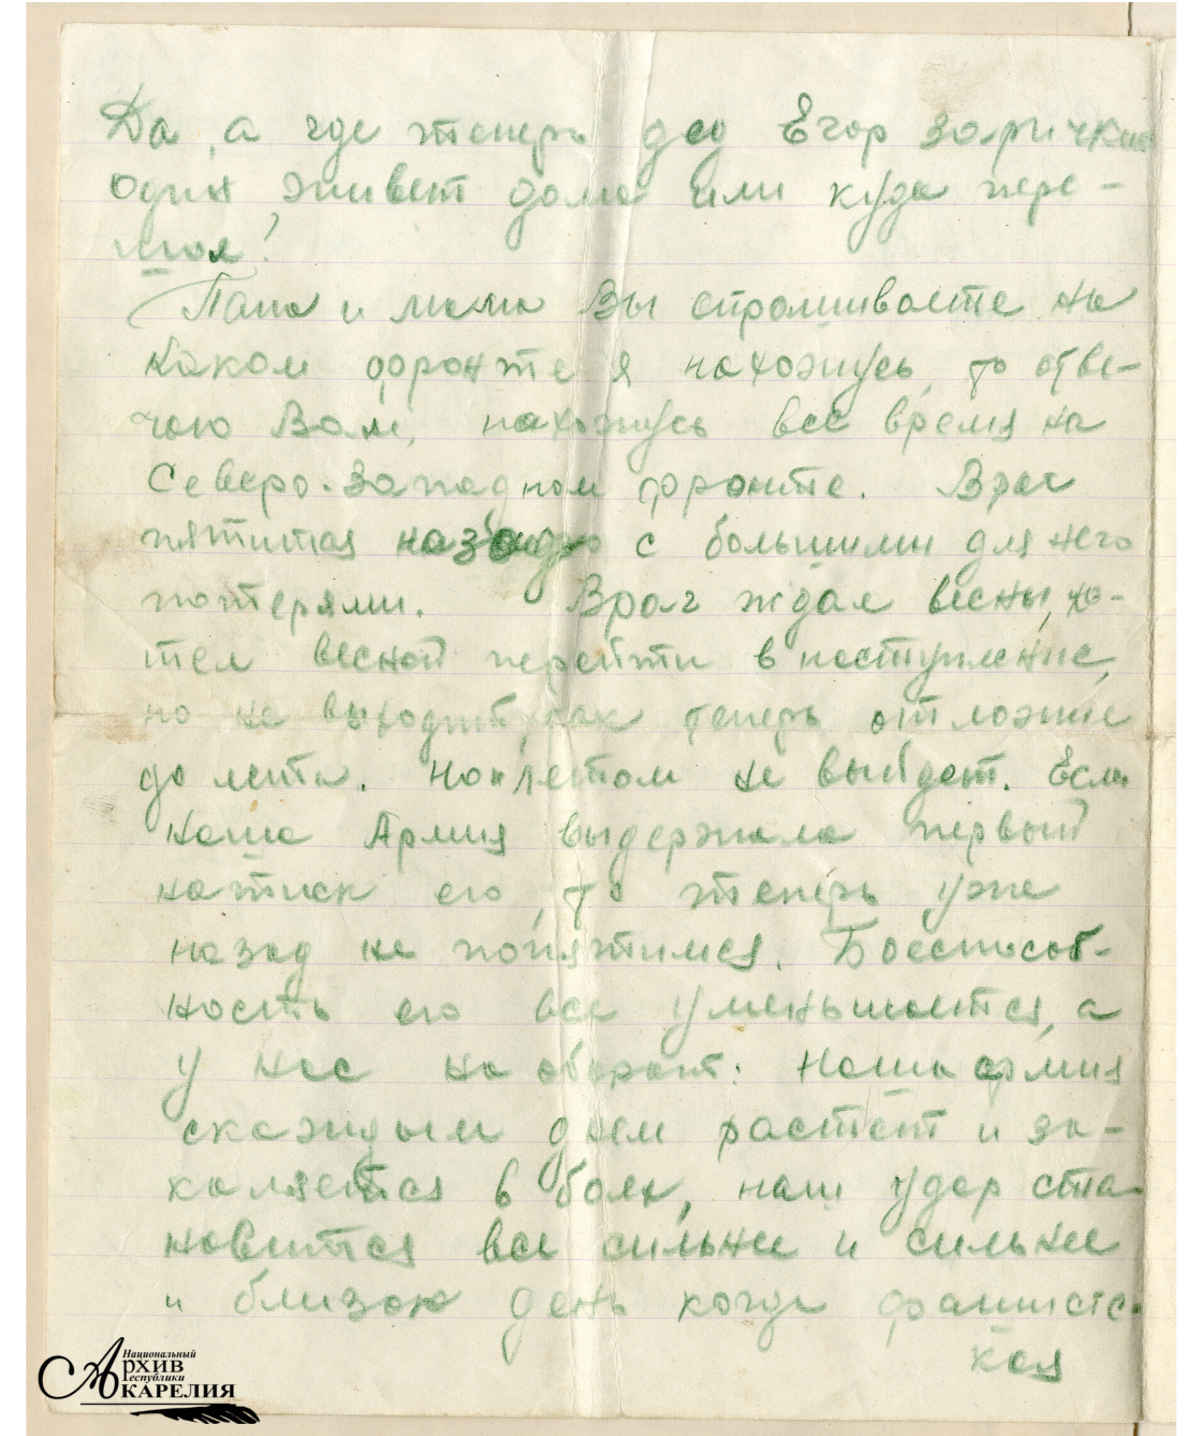 Да, а где теперь дед Егор
один живет дома или куда пере-
шол?
Папа и мама Вы спрашиваете на
каком фронте я нахожусь, то отве-
чаю Вам, нахожусь все время на
Северо-Западном фронте. Враг
пятится назад с большими для него
потерями. Враг ждал весны, хо-
тел весной перейти в наступление,
но не выходит, как теперь отложит
до лета. Но и летом не выйдет. Если
наша Армия выдержала первый
натиск его, то теперь уже
назад не попятимся. Боеспособ-
ность его все уменьшается, а
у нас на оборот: Наша армия
скаждым днем растет и за-
каляется в боях, наш удар ста-
новится все сильнее и сильнее
и близок день когда фашистс-
кая
Национальный
Архив
Республики
Карелия